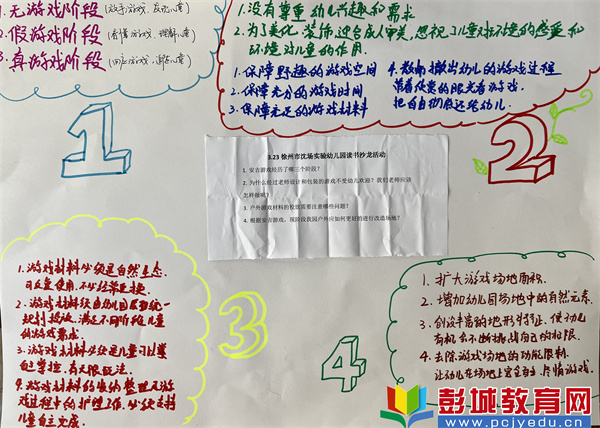 1. 无游戏阶段(放手游戏、
2. 假游戏阶段(看懂游戏、理解儿童)
3. 真游戏阶段(回应游戏、
1
1. 没有尊重幼儿兴趣和需求
2. 为了美化、装饰,迎合成人审美,忽视了儿童对环境的感受和
环境对儿童的作用.
1. 保障野趣的游戏空间
2. 保障充分的游戏时间
3. 保障充足的游戏材料
4. 教师撤出幼儿的游戏过程
带着欣赏的眼光看游戏.
把自由彻底还给幼儿.
2
3.23 徐州市沈场实验幼儿园读书沙龙活动
1. 安吉游戏经历了哪三个阶段?
2. 为什么经过老师设计和包装的游戏不受幼儿欢迎?我们老师应该
怎样做呢?
3. 户外游戏材料的投放需要注意哪些问题?
4. 根据安吉游戏,现阶段我园户外应如何更好的进行改造场地?
1. 游戏材料必须是自然生态.
可反复使用.不必经常更换.
2. 游戏材料须由幼儿园统一
规划投放.满足不同阶段儿童
的游戏需求.
3. 游戏材料必须是儿童可以掌
自主掌握、有无限玩法.
4. 游戏材料的收纳整理及游
戏过程中的护理工作.必须支持
儿童自主完成.
3
1. 扩大游戏场地面积.
2. 增加幼儿园场地中的自然元素.
3. 创设丰富的地形特征,使幼儿
有机会不断挑战自己的极限.
4. 去除游戏场地的功能限制.
让幼儿在场地上完全自主、尽情游戏.
4
彭城教育网
www.pcjyedu.cn